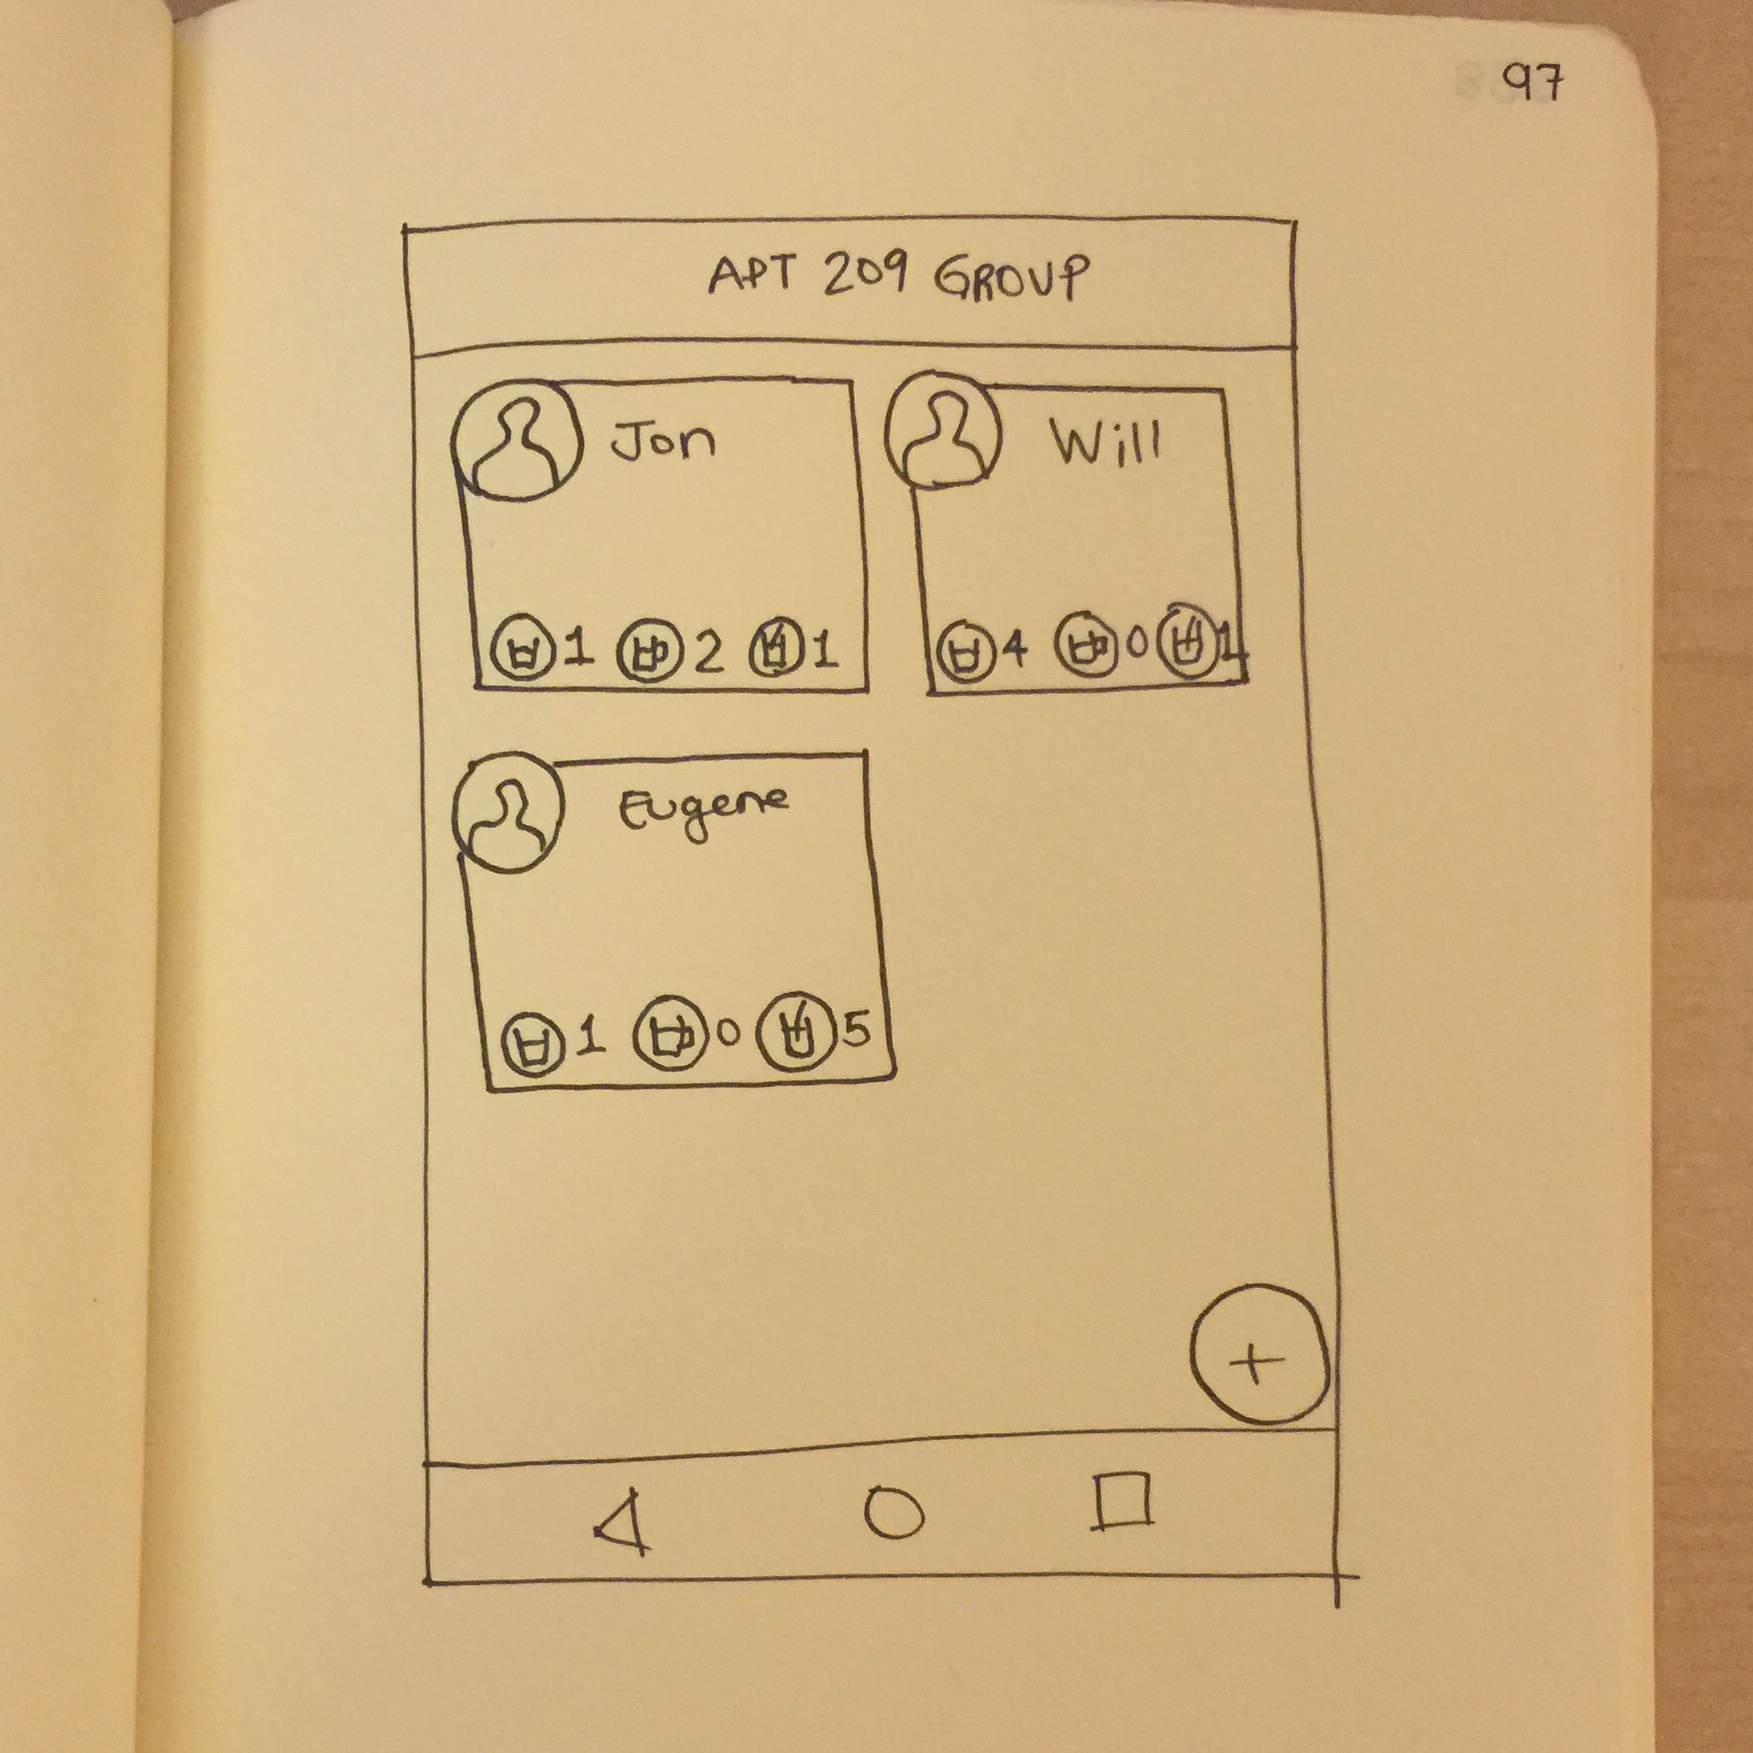 97
APT 209 GROUP
Jon
Will
1 2 1
4 0 1
Eugene
1 0 5
+